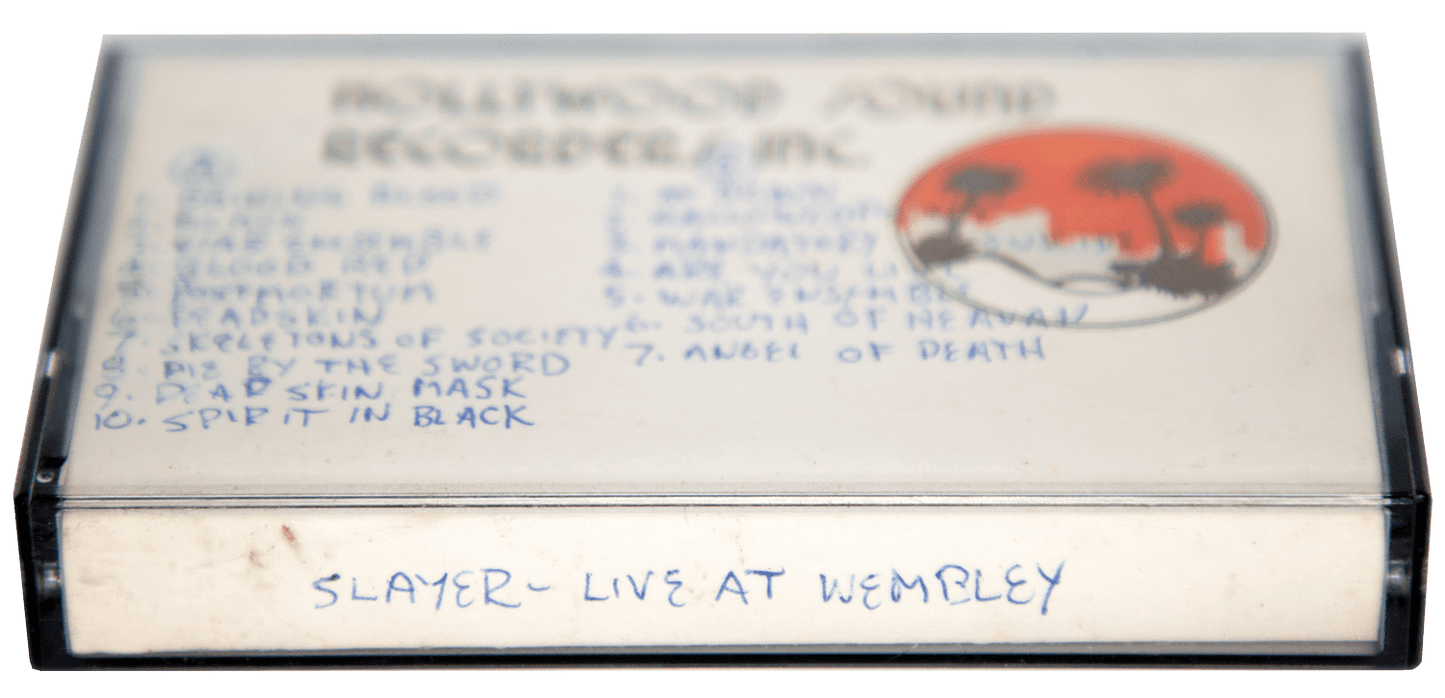 HOLLYWOOD SOUND
RECORDERS INC.
A
BLACK
WAR ENSEMBLE
BLOOD RED
POSTMORTUM
DEADSKIN
7. SKELETONS OF SOCIETY
8. DIE BY THE SWORD
9. DEAD SKIN MASK
10. SPIRIT IN BLACK
1.
2.
3. MANDATORY
4. ARE YOU
5. WAR ENSEMBLE
6. SOUTH OF HEAVAN
7. ANGEL OF DEATH
SLAYER - LIVE AT WEMBLEY